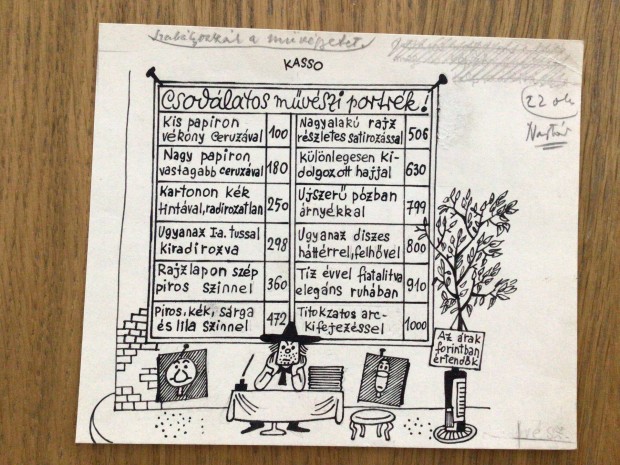 Szabályozzák a művészetet.
22 old
KASSO
Csodálatos művészi portrék!
Kis papiron
vékony ceruzával 100
Nagy papiron
vastagabb ceruzával 180
Kartonon kék
tintával, radirozatlan 250
Ugyanaz I-a. tussal
kiradirozva 298
Rajzlapon szép
piros szinnel 360
Piros, kék, sárga
és lila szinnel 472
Nagyalakú rajz
részletes satirozással 506
Különlegesen ki-
dolgozott hajjal 630
Ujszerű pózban
árnyékkal 799
Ugyanaz diszes
háttérrel, felhővel 800
Tiz évvel fiatalitva
elegáns ruhában 910
Titokzatos arc-
kifejezéssel 1000
Az árak
forintban
értendők